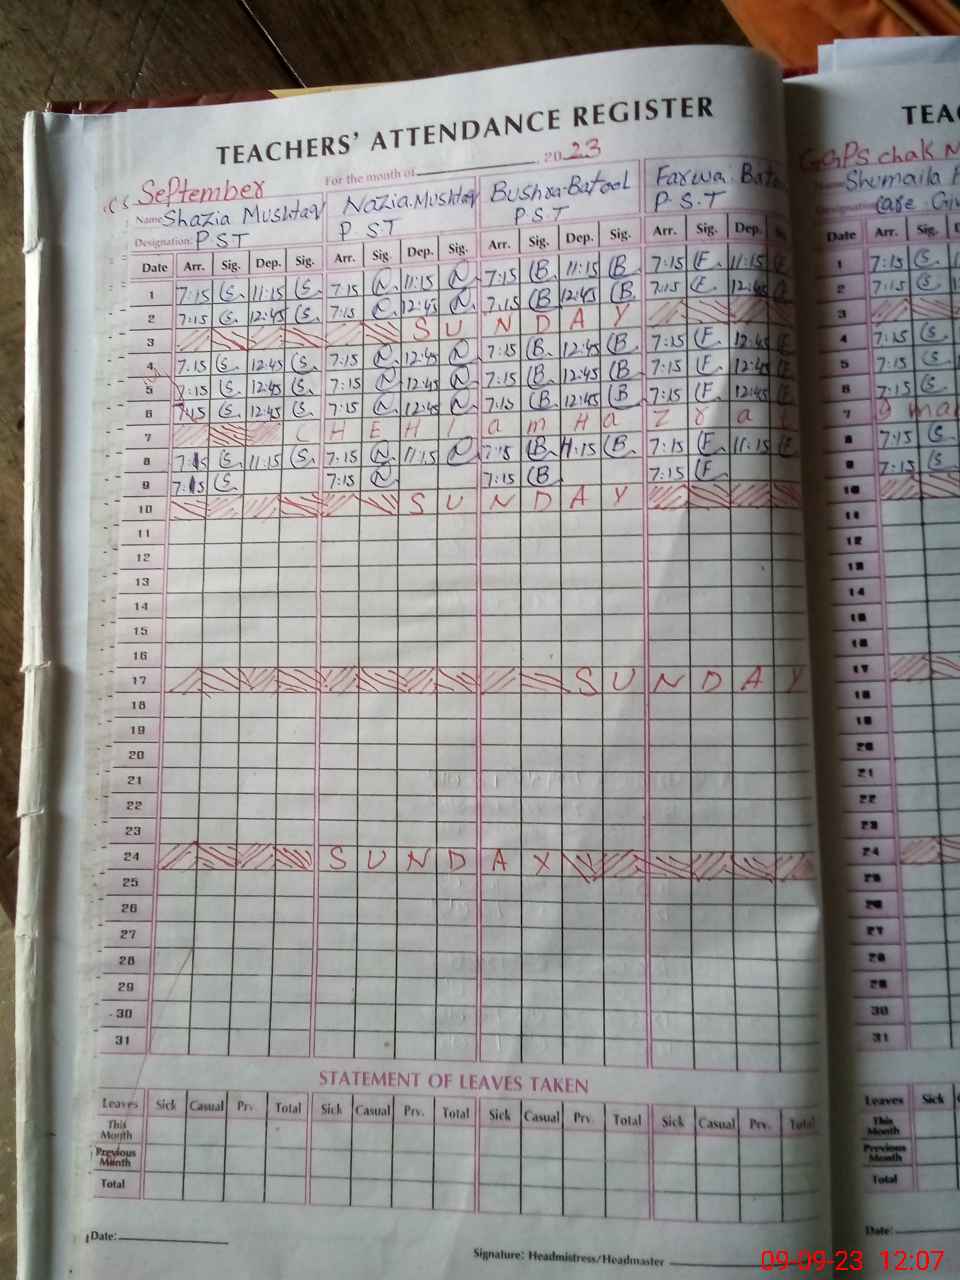 TEACHERS' ATTENDANCE REGISTER
September For the month of 2023
Name Shazia Mushtaq Nazia.Mushtaq Bushra-Batool Farwa.
Designation: P S T P S T P.S.T P.S.T
Date Arr. Sig. Dep. Sig. Arr. Sig. Dep. Sig. Arr. Sig. Dep. Sig. Arr. Sig. Dep.
1 7:15 S 11:15 S 7:15 N 11:15 N 7:15 B 11:15 B 7:15 F 11:15 F
2 7:15 S 12:45 S 7:15 N 12:45 N 7:15 B 12:45 B 7:15 F 12:45 F
3 S U N D A Y
4 7:15 S 12:45 S 7:15 N 12:45 N 7:15 B 12:45 B 7:15 F 12:45 F
5 7:15 S 12:45 S 7:15 N 12:45 N 7:15 B 12:45 B 7:15 F 12:45 F
6 7:15 S 12:45 S 7:15 N 12:45 N 7:15 B 12:45 B 7:15 F 12:45 F
7 C H E H l a m H a z r a t
8 7:15 S 11:15 S 7:15 N 11:15 N 7:15 B 11:15 B 7:15 F 11:15 F
9 7:15 S 7:15 N 7:15 B 7:15 F
10 S U N D A Y
11
12
13
14
15
16
17 S U N D A Y
18
19
20
21
22
23
24 S U N D A Y
25
26
27
28
29
30
31
STATEMENT OF LEAVES TAKEN
Leaves Sick Casual Prv. Total Sick Casual Prv. Total Sick Casual Prv. Total Sick Casual Prv. Total
This Month
Previous Month
Total
Date:
Signature: Headmistress/Headmaster
GGPS chak
Name Shumaila
Care
Date Arr. Sig.
1 7:15 S
2 7:15 S
3
4 7:15 S
5 7:15 S
6 7:15 S
7
8 7:15 S
9 7:15 S
10
11
12
13
14
15
16
17
18
19
20
21
22
23
24
25
26
27
28
29
30
31
Leaves Sick
This Month
Previous Month
Total
Date:
09-09-23 12:07